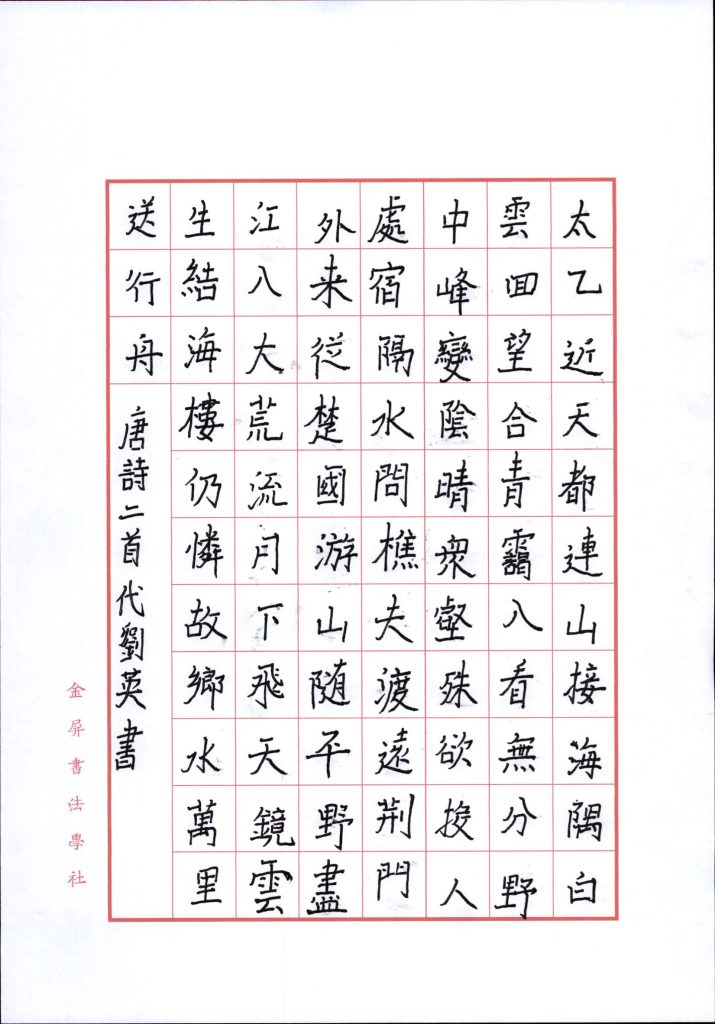 太乙近天都連山接海隅白
雲回望合青靄入看無分野
中峰變陰晴衆壑殊欲投人
處宿隔水問樵夫渡遠荆門
外来從楚國游山随平野盡
江入大荒流月下飛天鏡雲
生結海樓仍憐故鄉水萬里
送行舟
唐詩二首代劉英書
金屏書法學社